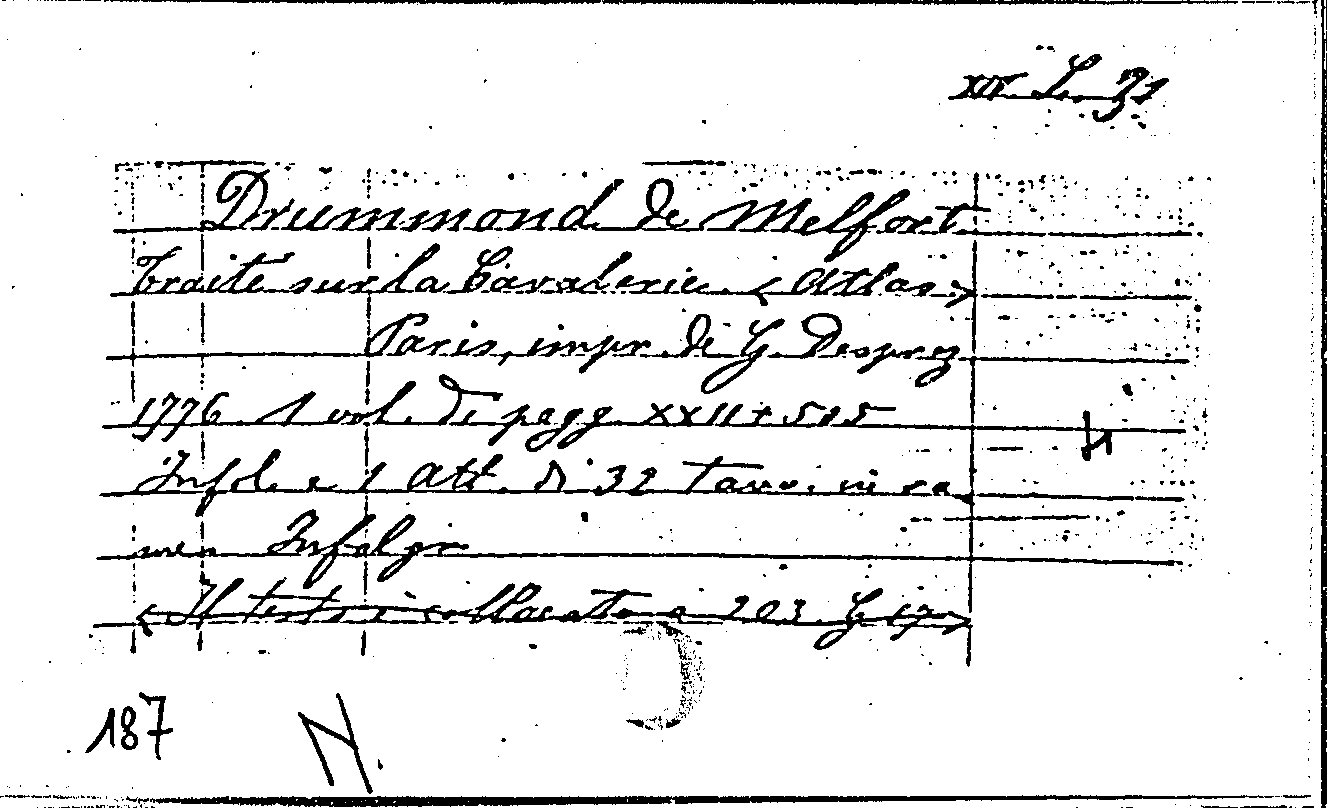 XII. L. 31
Drummond de Melfort
Traité sur la Cavalerie. <Atlas>
Paris, impr. di G. Desprez
1776. 1 vol. di pagg. XXII + 505
Infol. e 1 Atl. di 32 Tavv. in ra
men Infol gr
<Il testo è collocato a 203. G 17>
187
N.